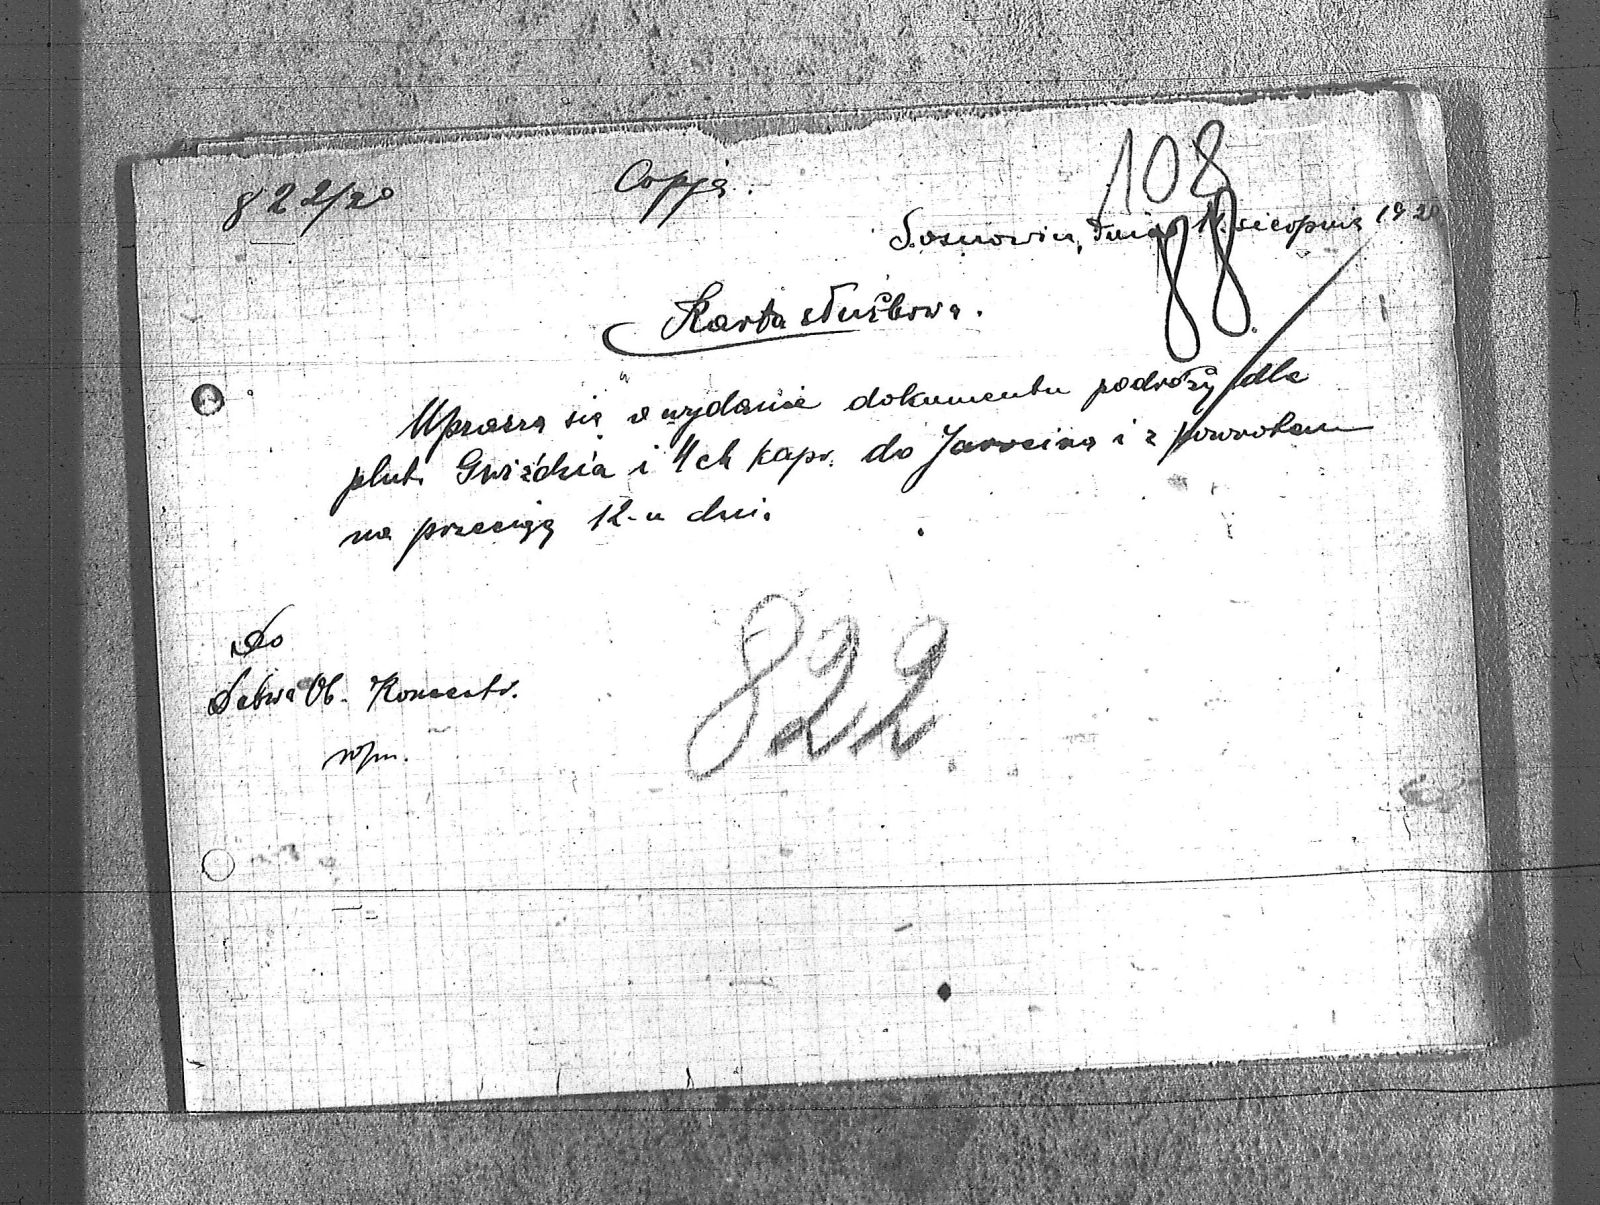 108
822/20 Copja.
Sosnowiec, dnia 11. sierpnia 1920
88
Karta służbowa.
Uprasza się o wydanie dokumentu podróży dla
plut. Gwiździa i 4ch kapr. do Jarocina i z powrotem
na przeciąg 12-u dni.
Do
Dctwa Ob. Koncentr.
w/m.
822